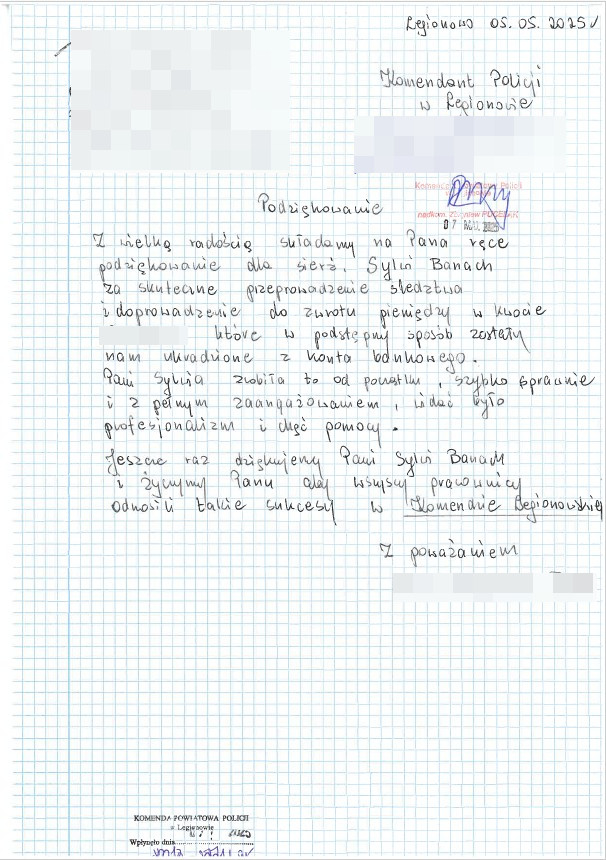 Legionowo 05.05.2025r
Komendant Policji
w Legionowie
Komendant Powiatowy Policji
nadkom. Zbigniew
07 MAJ 2025
Podziękowanie
Z wielką radością składamy na Pana ręce
podziękowanie dla sierż. Sylwii Banach
za skuteczne przeprowadzenie śledztwa
i doprowadzenie do zwrotu pieniędzy w kwocie
które w podstępny sposób zostały
nam ukradzione z konta bankowego.
Pani Sylwia zrobiła to od początku, szybko sprawnie
i z pełnym zaangażowaniem, widać było
profesjonalizm i chęć pomocy.
Jeszcze raz dziękujemy Pani Sylwii Banach
i życzymy Panu aby wszyscy pracownicy
odnosili takie sukcesy w Komendzie Legionowskiej
Z poważaniem
KOMENDA POWIATOWA POLICJI
w Legionowie
Wpłynęło dnia